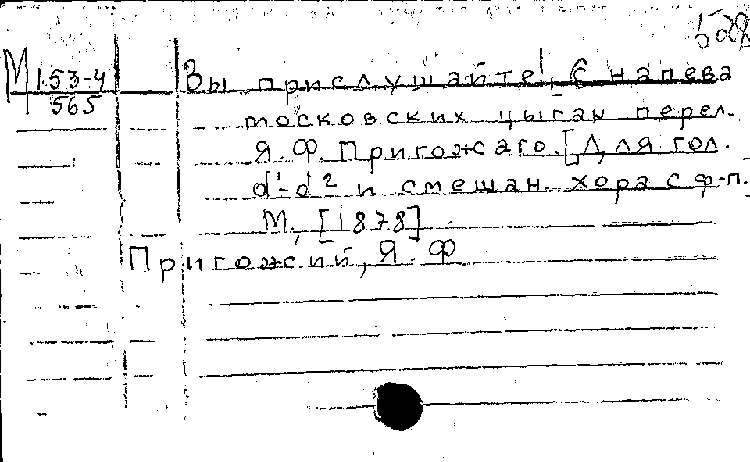 528
М 1.53-4
565
Вы прислушайте! С напева
московских цыган перел.
Я. Ф. Пригожаго. [Для гол.
d¹-d² и смешан. хора с ф-п.
М., [1878]
Пригожий, Я. Ф.